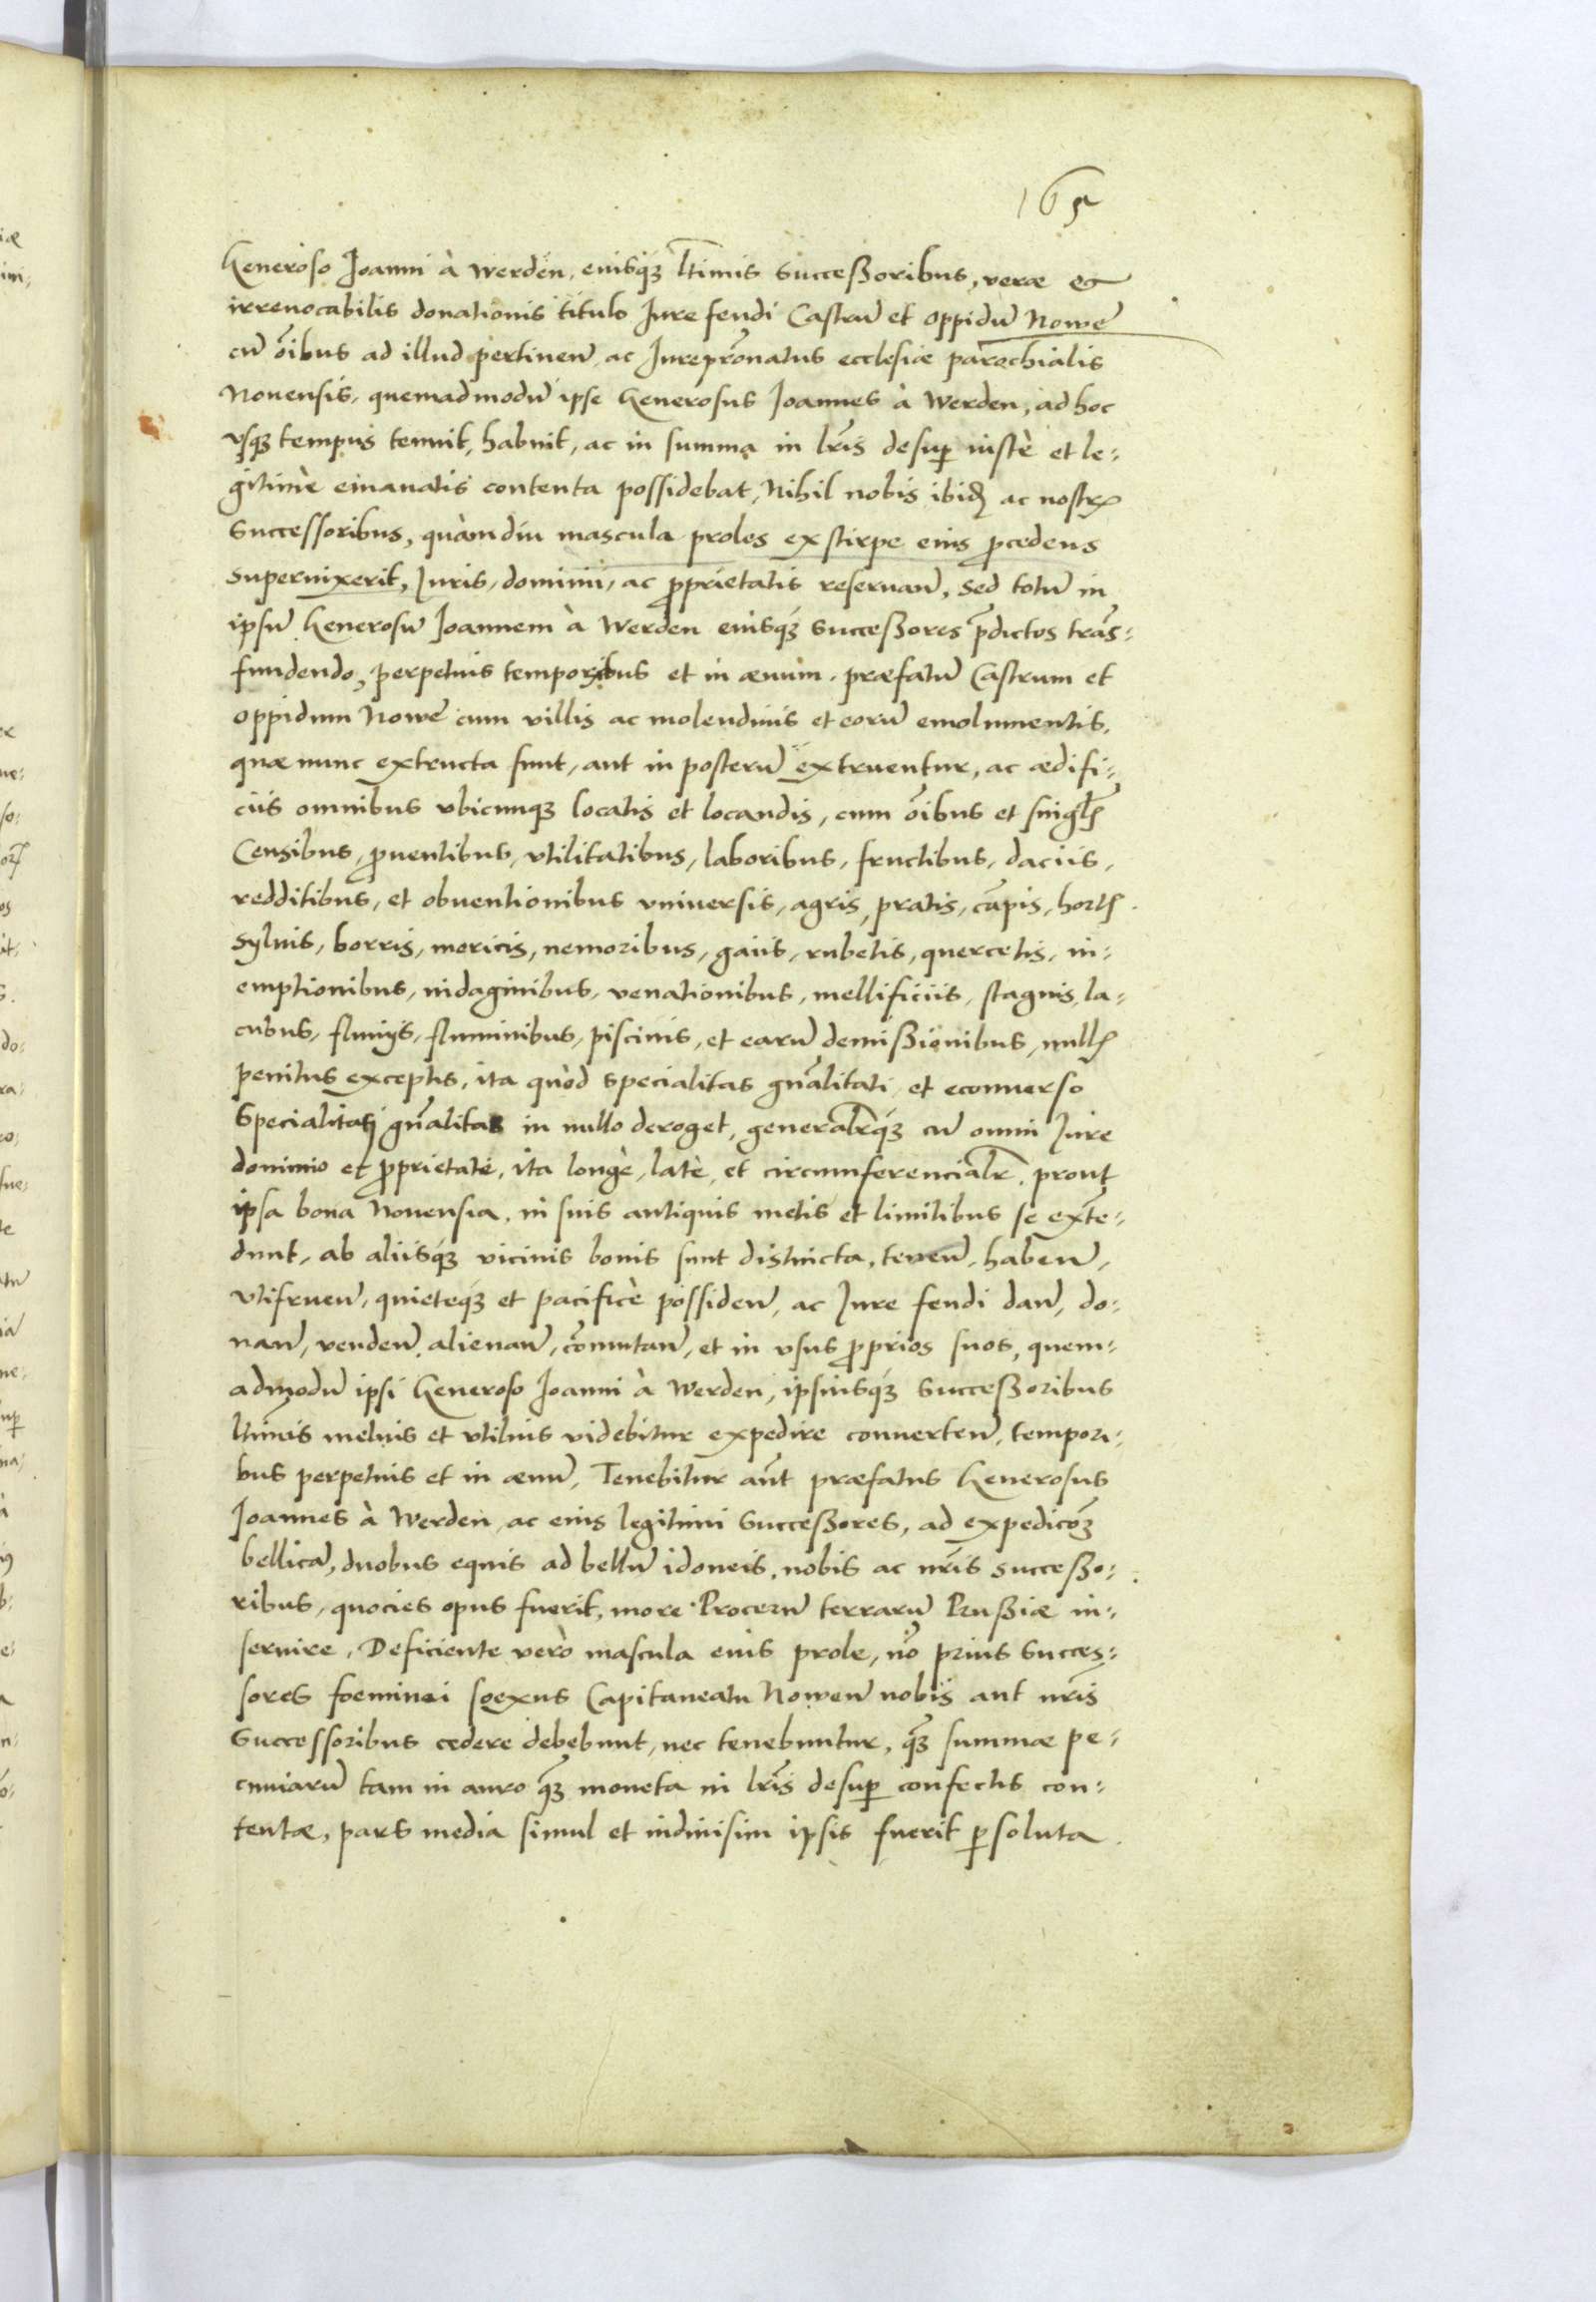 165
Generoso Joanni à Werden, eiusq́ꝫ ltimis successoribus, veræ et
irreuocabilis donationis titulo Jure feudi Castrū et oppidū Nowe
cū oībus ad illud pertineñ, ac Jurepr̄onatus ecclesiæ parochialis
Nouensis, quemadmodū ipse Generosus Joannes à Werden, ad hoc
vsqꝫ tempus tenuit, habuit, ac in summa in lr̄is desuꝑ iustè et le:
gitimè emanatis contenta possidebat, Nihil nobis ibid. ac nostrꝭ
successoribus, quàmdiu mascula proles ex stirpe eius ꝓcedens
superuixerit, Juris, dominii, ac ꝓprietatis reseruañ, sed totū in
ipsū Generosū Joannem à Werden eiusq́ꝫ successores p̄dictos trās:
fundendo, perpetuis temporibus et in æuum. præfatū Castrum et
oppidum Nowe cum villis ac molendinis et eorū emolumentis,
quæ nunc extructa sunt, aut in posterū extruentur, ac ædifi:
ciis omnibus vbicunqꝫ locatis et locandis, cum oībus et singlꝭ
Censibus, ꝓuentibus, vtilitatibus, laboribus, fructibus, daciis,
redditibus, et obuentionibus vniuersis, agris, pratis, cāpis, hortꝭ
syluis, borris, mericis, nemoribus, gaiis, rubetis, quercetis, in:
emptionibus, indaginibus, venationibus, mellificiis, stagnis, la:
cubus, fluuijs, fluminibus, piscinis, et earū demissionibus, nullꝭ
penitus exceptis, ita quòd specialitas gn̄alitati et econuerso
Specialitati gn̄alitas in nullo deroget, generalr̄q́ꝫ cū omni Jure
dominio et ꝓprietate, ita longè, latè, et circumferencialr̄, prout
ipsa bona Nouensia, in suis antiquis metis et limitibus se extē:
dunt, ab aliisq́ꝫ vicinis bonis sunt distincta, teneñ, habeñ,
vtifrueñ, quieteq́ꝫ et pacificè possideñ, ac Jure feudi dañ, do:
nañ, vendeñ, alienañ, cōmutañ, et in vsus ꝓprios suos, quem:
admodū ipsi Generoso Joanni à Werden, ipsiusq́ꝫ successoribus
ltimis melius et vtilius videbitur expedire conuerteñ, tempori:
bus perpetuis et in æuū, Tenebitur aūt præfatus Generosus
Joannes à Werden, ac eius legitimi successores, ad expedicōꝫ
bellicā, duobus equis ad bellū idoneis, nobis ac nr̄is successo:
ribus, quocies opus fuerit, more Procerū terrarū Prussiæ in:
seruire, Deficiente verò mascula eius prole, nō prius succes:
sores foeminei soexus Capitaneatu Noweñ nobis aut nr̄is
successoribus cedere debebunt, nec tenebuntur, qꝫ summæ pe:
cuniarū tam in auro qꝫ moneta in lr̄is desuꝑ confectis con:
tentæ, pars media simul et indiuisim ipsis fuerit ꝑsoluta.